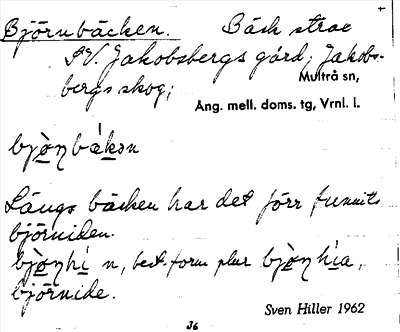 Björnbäcken. Bäck strax
SV. Jakobsbergs gård, Jakobs-
bergs skog;
Multrå sn,
Ång. mell. doms. tg, Vrnl. l.
Längs bäcken har det förr funnits
björniden.
n, best. form plur
björnide.
Sven Hiller 1962
36